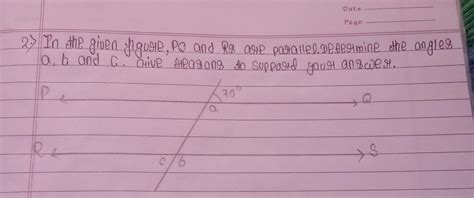 Date
Page
2) In the given figure, PQ and RS are parallel. Determine the angles
a, b and c. Give reasons to support your answer.
P 70° Q
a
R c b S